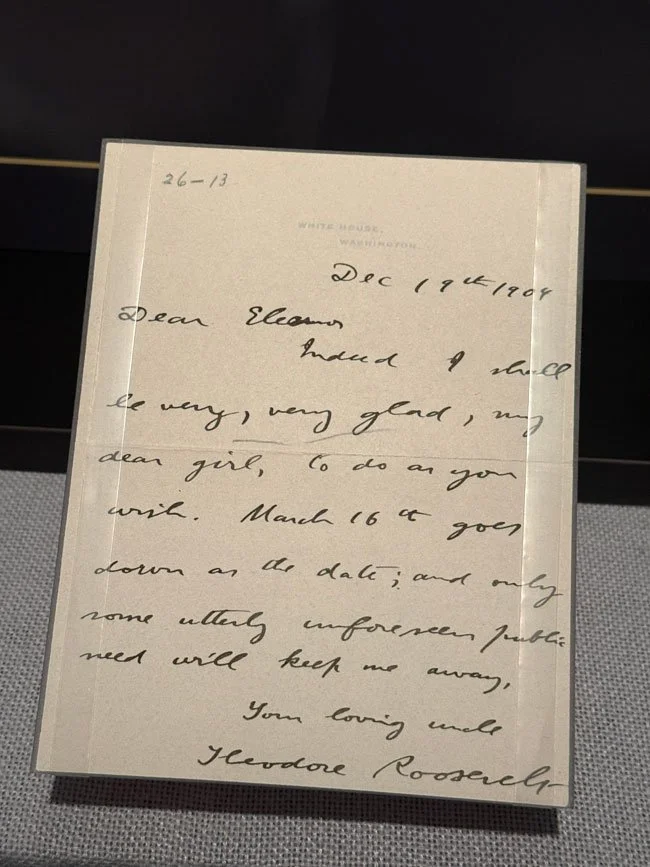 26-13
WHITE HOUSE,
WASHINGTON.
Dec 19th 1904
Dear Eleanor
Indeed I shall
be very, very glad, my
dear girl, to do as you
wish. March 16th goes
down as the date; and only
some utterly unforeseen public
need will keep me away,
Your loving uncle
Theodore Roosevelt